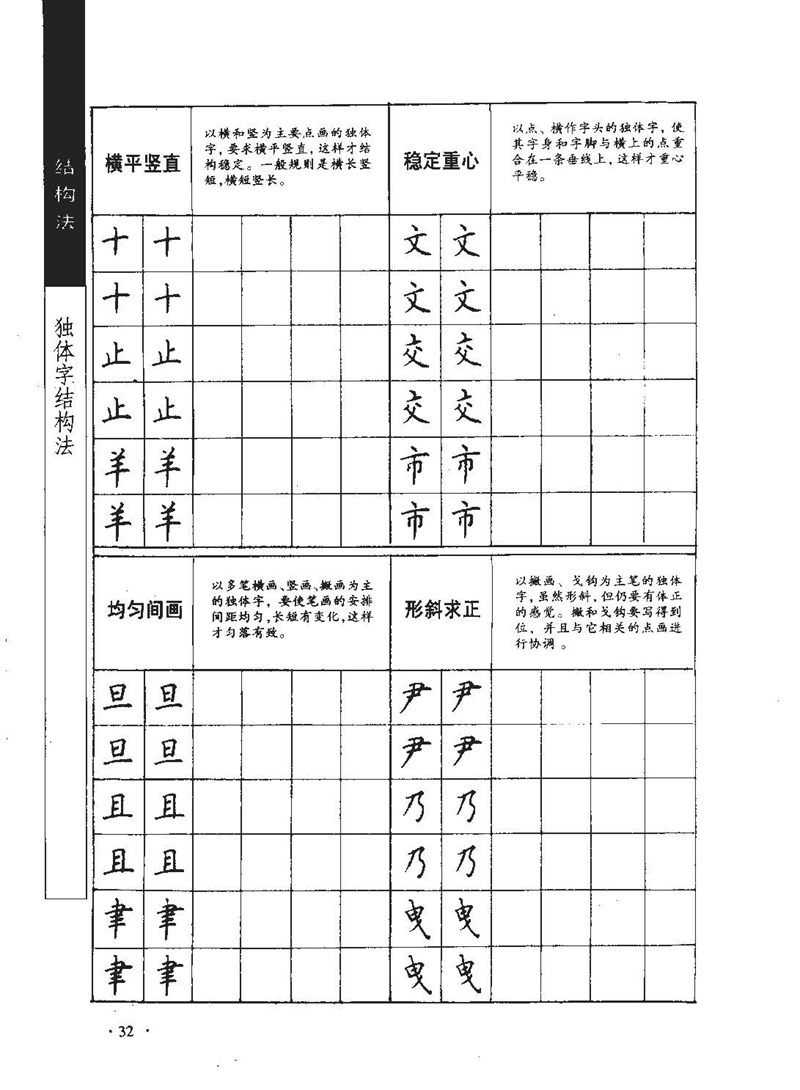 结构法
独体字结构法
横平竖直
以横和竖为主要点画的独体
字，要求横平竖直，这样才结
构稳定。一般规则是横长竖
短，横短竖长。
稳定重心
以点、横作字头的独体字，使
其字身和字脚与横上的点重
合在一条垂线上，这样才重心
平稳。
十 十 文 文
十 十 文 文
止 止 交 交
止 止 交 交
羊 羊 市 市
羊 羊 市 市
均匀间画
以多笔横画、竖画、撇画为主
的独体字，要使笔画的安排
间距均匀，长短有变化，这样
才匀落有致。
形斜求正
以撇画、戈钩为主笔的独体
字，虽然形斜，但仍要有体正
的感觉。撇和戈钩要写得到
位、并且与它相关的点画进
行协调。
旦 旦 尹 尹
旦 旦 尹 尹
且 且 乃 乃
且 且 乃 乃
聿 聿 曳 曳
聿 聿 曳 曳
·32·